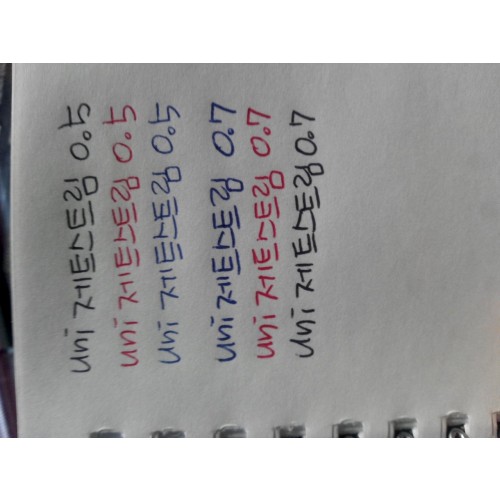 uni 제트스트림 0.5
uni 제트스트림 0.5
uni 제트스트림 0.5
uni 제트스트림 0.7
uni 제트스트림 0.7
uni 제트스트림 0.7